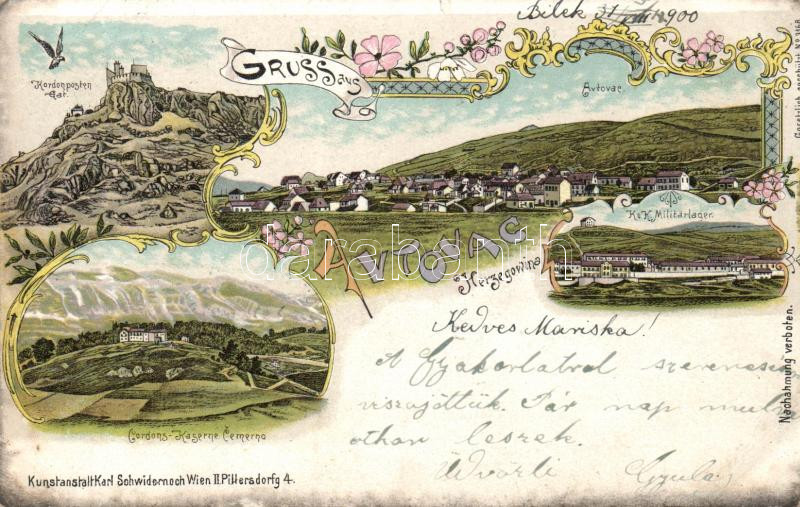 Bilek 1900
GRUSS aus
Kordonposten
Gat.
Avtovac
K.u.K. Militärlager.
AVTOVAC
Herzegowina
darabanth.com
Kedves Mariska!
A Gyakorlatról szerencsésen
visszajöttük. Pár nap mulva
othon leszek.
Üdvözli Gyula
Cordons-Kaserne Čemerno
Kunstanstalt Karl Schwidernoch Wien II. Pillersdorfg 4.
Nachahmung verboten.